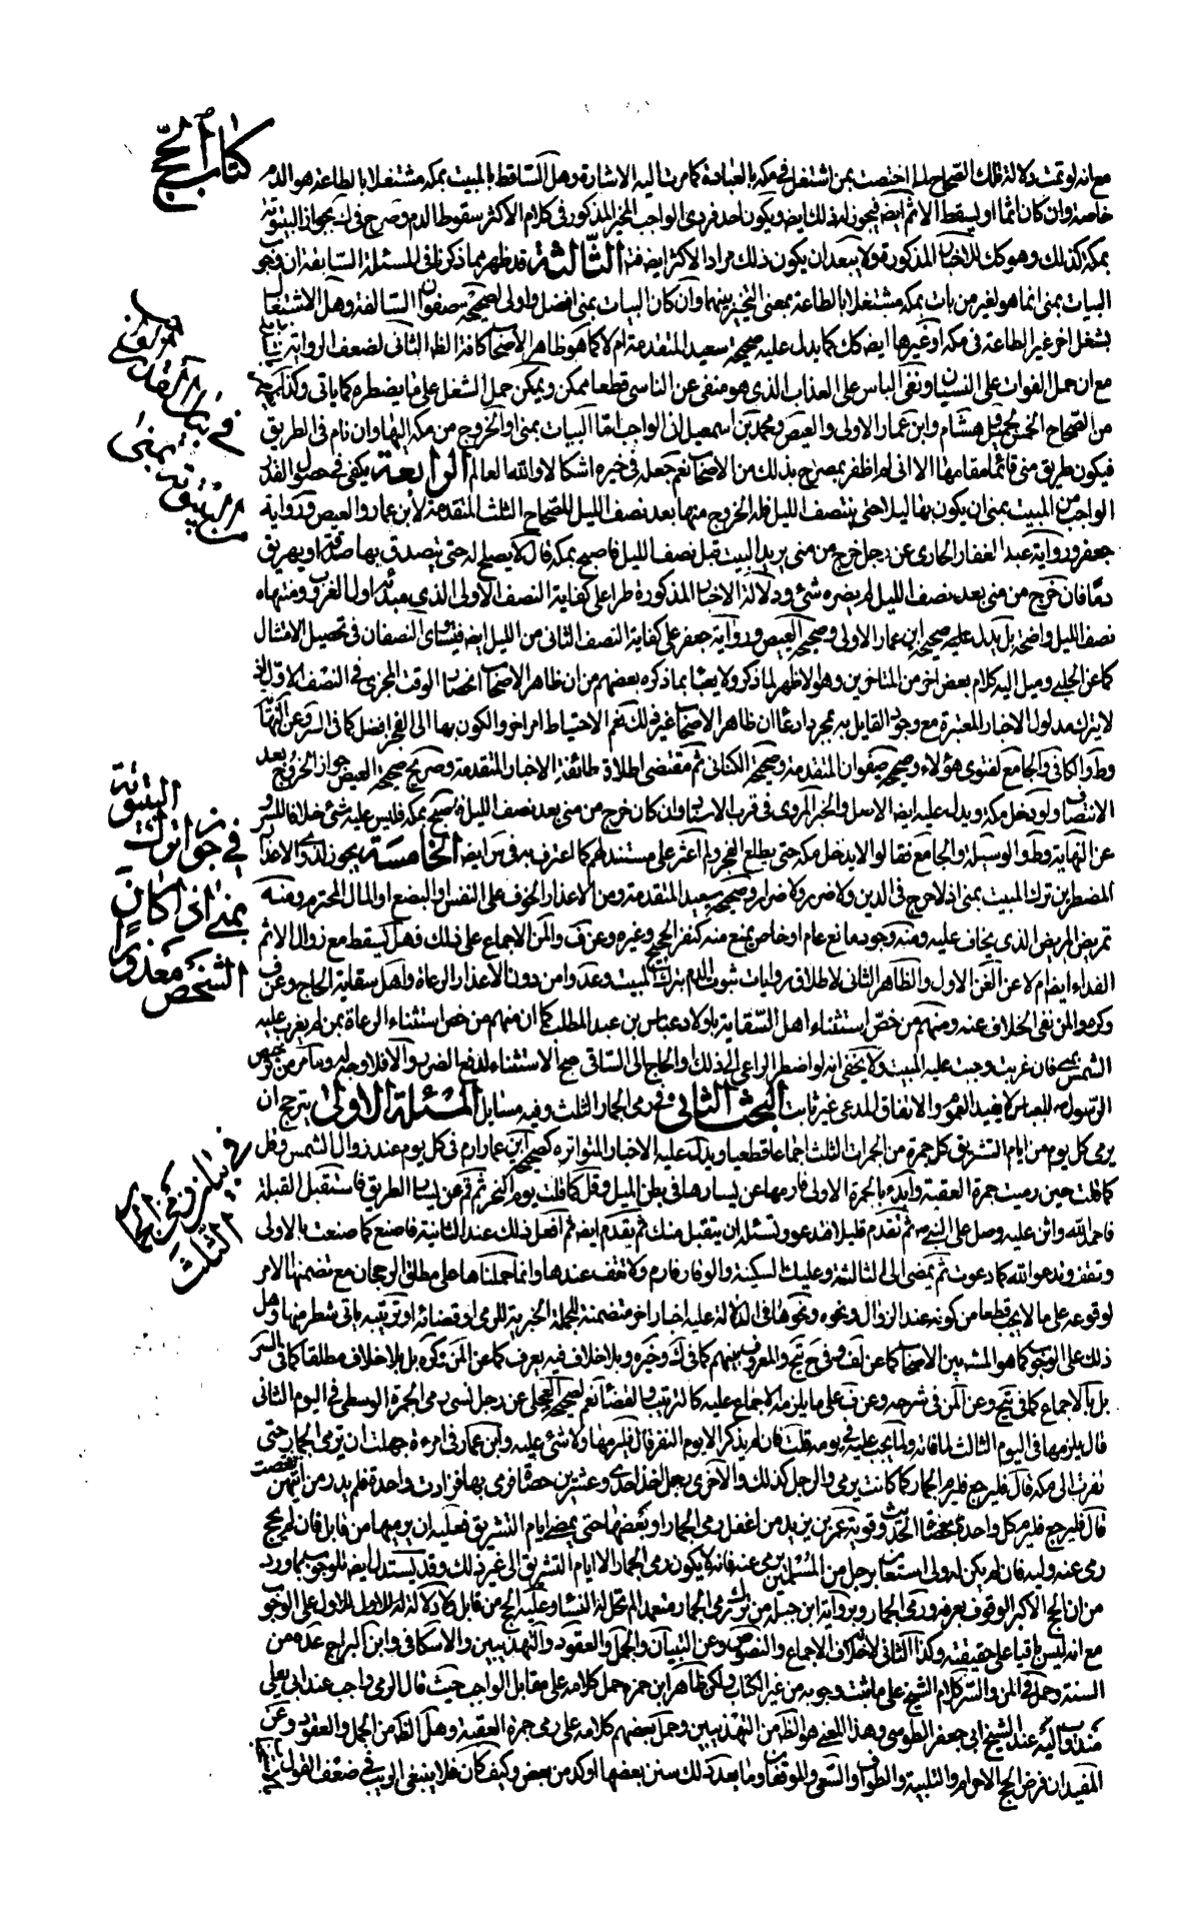 كتاب الحج
مع انه لو تمت دلالة تلك الصحاح لما اختصت بمن اشتغل في مكة بالعبادة كما مرت اليه الاشارة وهل الساقط بالمبيت بمكة مشتغلا بالطاعة هو الدم
خاصة وان كان اثما او يسقط الاثم ايضا فيجوز له ذلك ايضا ويكون احد فردي الواجب المخير المذكور في كلام الاكثر سقوط الدم وصرح في بجواز البيتوتة
بمكة كذلك وهو كك للاخبار المذكورة ولا يبعد ان يكون ذلك مراد الاكثر ايضا الثالثة قد ظهر مما ذكرنا في المسئلة السابقة ان وجوب
البيات بمنى انما هو لغير من بات بمكة مشتغلا بالطاعة بمعنى التخيير بينهما وان كان البيات بمنى افضل واولى لصحيحة صفوان السالفة وهل الاشتغال
بشغل اخر غير الطاعة في مكة او غيرها ايضا كك كما يدل عليه صحيحة سعيد المتقدمة ام لا كما هو ظاهر الاصحاب كافة الظ الثاني لضعف الرواية
مع ان حمل الفوات على النسيان ونفي الباس على العذاب الذي هو منفي عن الناسي قطعا ممكن ويمكن حمل الشغل على ما يضطره كما ياتي وكذا
من الصحاح الخمس لجميل وهشام وابن عمار الاولى والعيص ومحمد بن اسمعيل ان الواجب اما البيات بمنى او الخروج من مكة اليها وان نام في الطريق
فيكون طريق منى قائما مقامها الا اني لم اظفر بمصرح بذلك من الاصحاب نعم جعله في خيرة اشكالا والله العالم الرابعة يكفي في حصول القدر
الواجب من المبيت بمنى ان يكون بها ليلا حتى ينتصف الليل فله الخروج منها بعد نصف الليل للصحاح الثلث المتقدمة لابن عمار والعيص ورواية
جعفر ورواية عبد الغفار الجازي عن رجل خرج من منى يريد البيت قبل نصف الليل فاصبح بمكة قال لا يصلح له حتى يتصدق بها صدقة او يهريق
دما فان خرج من منى بعد نصف الليل لم يضره شئ ودلالة الاخبار المذكورة طرا على كفاية النصف الاولى الذي مبدئه اول الغروب ومنتهاه
نصف الليل واضحة بل يدل عليه صحيحة ابن عمار الاولى وصحيحة العيص ورواية جعفر على كفاية النصف الثاني من الليل ايضا فيتساوى النصفان في تحصيل الامتثال
كما عن الحلبي ويميل اليه كلام بعض اخر من المتاخرين وهو الاظهر لما ذكر ولا يعبأ بما ذكره بعضهم من ان ظاهر الاصحاب انحصار الوقت المجزي في النصف الاول
لا يترك مدلول الاخبار المعتبرة مع وجود القايل به بمجرد ادعاء ان ظاهر الاصحاب غير ذلك نعم الاحتياط امر اخر والكون بها الى الفجر افضل كما في السر وعن النهاية
وط والكافي والجامع لفتوى هؤلاء وصحيحة صفوان المتقدمة وصحيحة الكناني ثم مقتضى اطلاق طائفة الاخبار المتقدمة وصريح صحيحة العيص جواز الخروج بعد
الانتصاف ولو دخل مكة ويدل عليه ايضا الاصل والخبر المروي في قرب الاسناد وان كان خرج من منى بعد نصف الليل فاصبح بمكة فليس عليه شئ خلافا للسر و
عن النهاية وط والوسيلة والجامع فقالوا لا يدخل مكة حتى يطلع الفجر ولم اعثر على مستندهم كما اعترف به في س ايضا الخامسة يجوز لذوي الاعذار
المضطرين ترك المبيت بمنى اذ لا حرج في الدين ولا ضرر ولا ضرار وصحيحة سعيد المتقدمة ومن الاعذار الخوف على النفس او البضع او المال المحترم ومنه
تمريض المريض الذي يخاف عليه ومنه وجود مانع عام او خاص يمنع منه كنفر الحجيج وغيره وعن ف والمن الاجماع على ذلك وهل يسقط مع زوال الاثم
الفداء ايضا ام لا عن الغن الاول والظاهر الثاني لاطلاق روايات ثبوت الدم بترك المبيت وعدوا من ذوي الاعذار الرعاة واهل سقاية الحاج وعن ف
وكره والمن نفي الخلاف عنه ومنهم من خص استثناء اهل السقاية باولاد عباس بن عبد المطلب كما ان منهم من خص استثناء الرعاة بمن لم يغرب عليه
الشمس بمنى فان غربت وجبت عليه المبيت ولا يخفى انه لو اضطر الراعي الى ذلك والحاج الى الساقي صح الاستثناء لدفع الضرر والا فلا وجه له وما مر من ترخيص
الرسول ص للعباس لا يفيد العموم والاتفاق المدعى غير ثابت البحث الثاني في رمي الجمار الثلث وفيه مسايل المسئلة الاولى يترجح ان
يرمي كل يوم من ايام التشريق كل جمرة من الجمرات الثلث اجماعا قطعيا ويدل عليه الاخبار المتواترة كصحيحة ابن عمار ارم في كل يوم عند زوال الشمس وقل
كما قلت حين رميت جمرة العقبة وابدء بالجمرة الاولى فارمها عن يسارها في بطن المسيل وقل كما قلت يوم النحر ثم قم عن يسار الطريق فاستقبل القبلة
فاحمد الله واثن عليه وصل على النبي ص ثم تقدم قليلا فتدعو وتسئله ان يتقبل منك ثم تقدم ايضا ثم افعل ذلك عند الثانية فاصنع كما صنعت بالاولى
وتقف وتدعو الله كما دعوت ثم تمضي الى الثالثة وعليك السكينة والوقار فارم ولا تقف عندها وانما حملناها على مطلق الرجحان مع تضمنها الامر
لوقوعه على ما لا يجب قطعا من كونه عند الزوال ونحوه ونحوها في الدلالة عليه اخبار اخر متضمنة للجملة الخبرية للرمي او قضائه او ترتيبه ياتي شطر منها وهل
ذلك على الوجوب كما هو المشهور بين الاصحاب كما عن لف وفي ح يج والمعروف بينهم كما في ك وخيره وبلا خلاف فيه يعرف كما عن المن وكره بل بلا خلاف مطلقا كما في السر
بل بالاجماع كما في يج وعن المن في شرحه وعن ف على ما يلزمه الاجماع عليه كالترتيب والقضاء نعم لصحيحة العجلي عن رجل نسي رمي الجمرة الوسطى في اليوم الثاني
قال يلزمها في اليوم الثالث لما فاته ولما يجب عليه في يومه قلت فان لم يذكر الا يوم النفر قال فليرمها ولا شئ عليه وابن عمار في امرءة جهلت ان ترمي الجمار حتى
نفرت الى مكة قال فلترجع فلترم الجمار كما كانت ترمي والرجل كذلك والاخرى رجل اخذ احدى وعشرين حصاة فرمى بها فزادت واحدة فلم يدر من ايتهن نقصت
قال فليرجع فليرم كل واحدة بحصاة الحديث وقوية عمر بن يزيد من اغفل رمي الجمار او بعضها حتى يمضي ايام التشريق فعليه ان يرميها من قابل فان لم يحج
رمى عنه وليه فان لم يكن له ولي استعان برجل من المسلمين يرمي عنه فانه لا يكون رمي الجمار الا ايام التشريق الى غير ذلك وقد يستدل ايضا للوجوب بما ورد
من ان الحج الاكبر الوقوف بعرفة ورمي الجمار وبرواية ابن جبلة من ترك رمي الجمار متعمدا لم تحل له النساء وعليه الحج من قابل ولا دلالة له للاول على الوجوب
مع انه ليس باقيا على حقيقته وكذا الثاني لخلاف الاجماع والنصوص وعن التبيان والجمل والعقود والتهذيبين والاسكافي وابن البراج عده من
السنة وحمل في المن والسر كلام الشيخ على ما ثبت وجوبه من غير الكتاب ولكن ظاهر ابن حمزة حمل كلامه على مقابل الواجب حيث قال الرمي واجب عند ابي يعلى
مندوب اليه عند الشيخ ابي جعفر الطوسي وهذا المعنى هو الظ من التهذيبين وحمل بعضهم كلامه على رمي جمرة العقبة وهل الظ من الجمل والعقود وعن
المفيد ان فرض الحج الاحرام والتلبية والطواف والسعي والموقفان وما بعد ذلك سنن بعضها اوكد من بعض وكيف كان فلا ينبغي الريب في ضعف القول
في بيان القدر الواجب
من البيتوتة بمنى
في جواز ترك البيتوتة
بمنى اذا كان
الشخص معذورا
في بيان رمي الجمار
الثلث